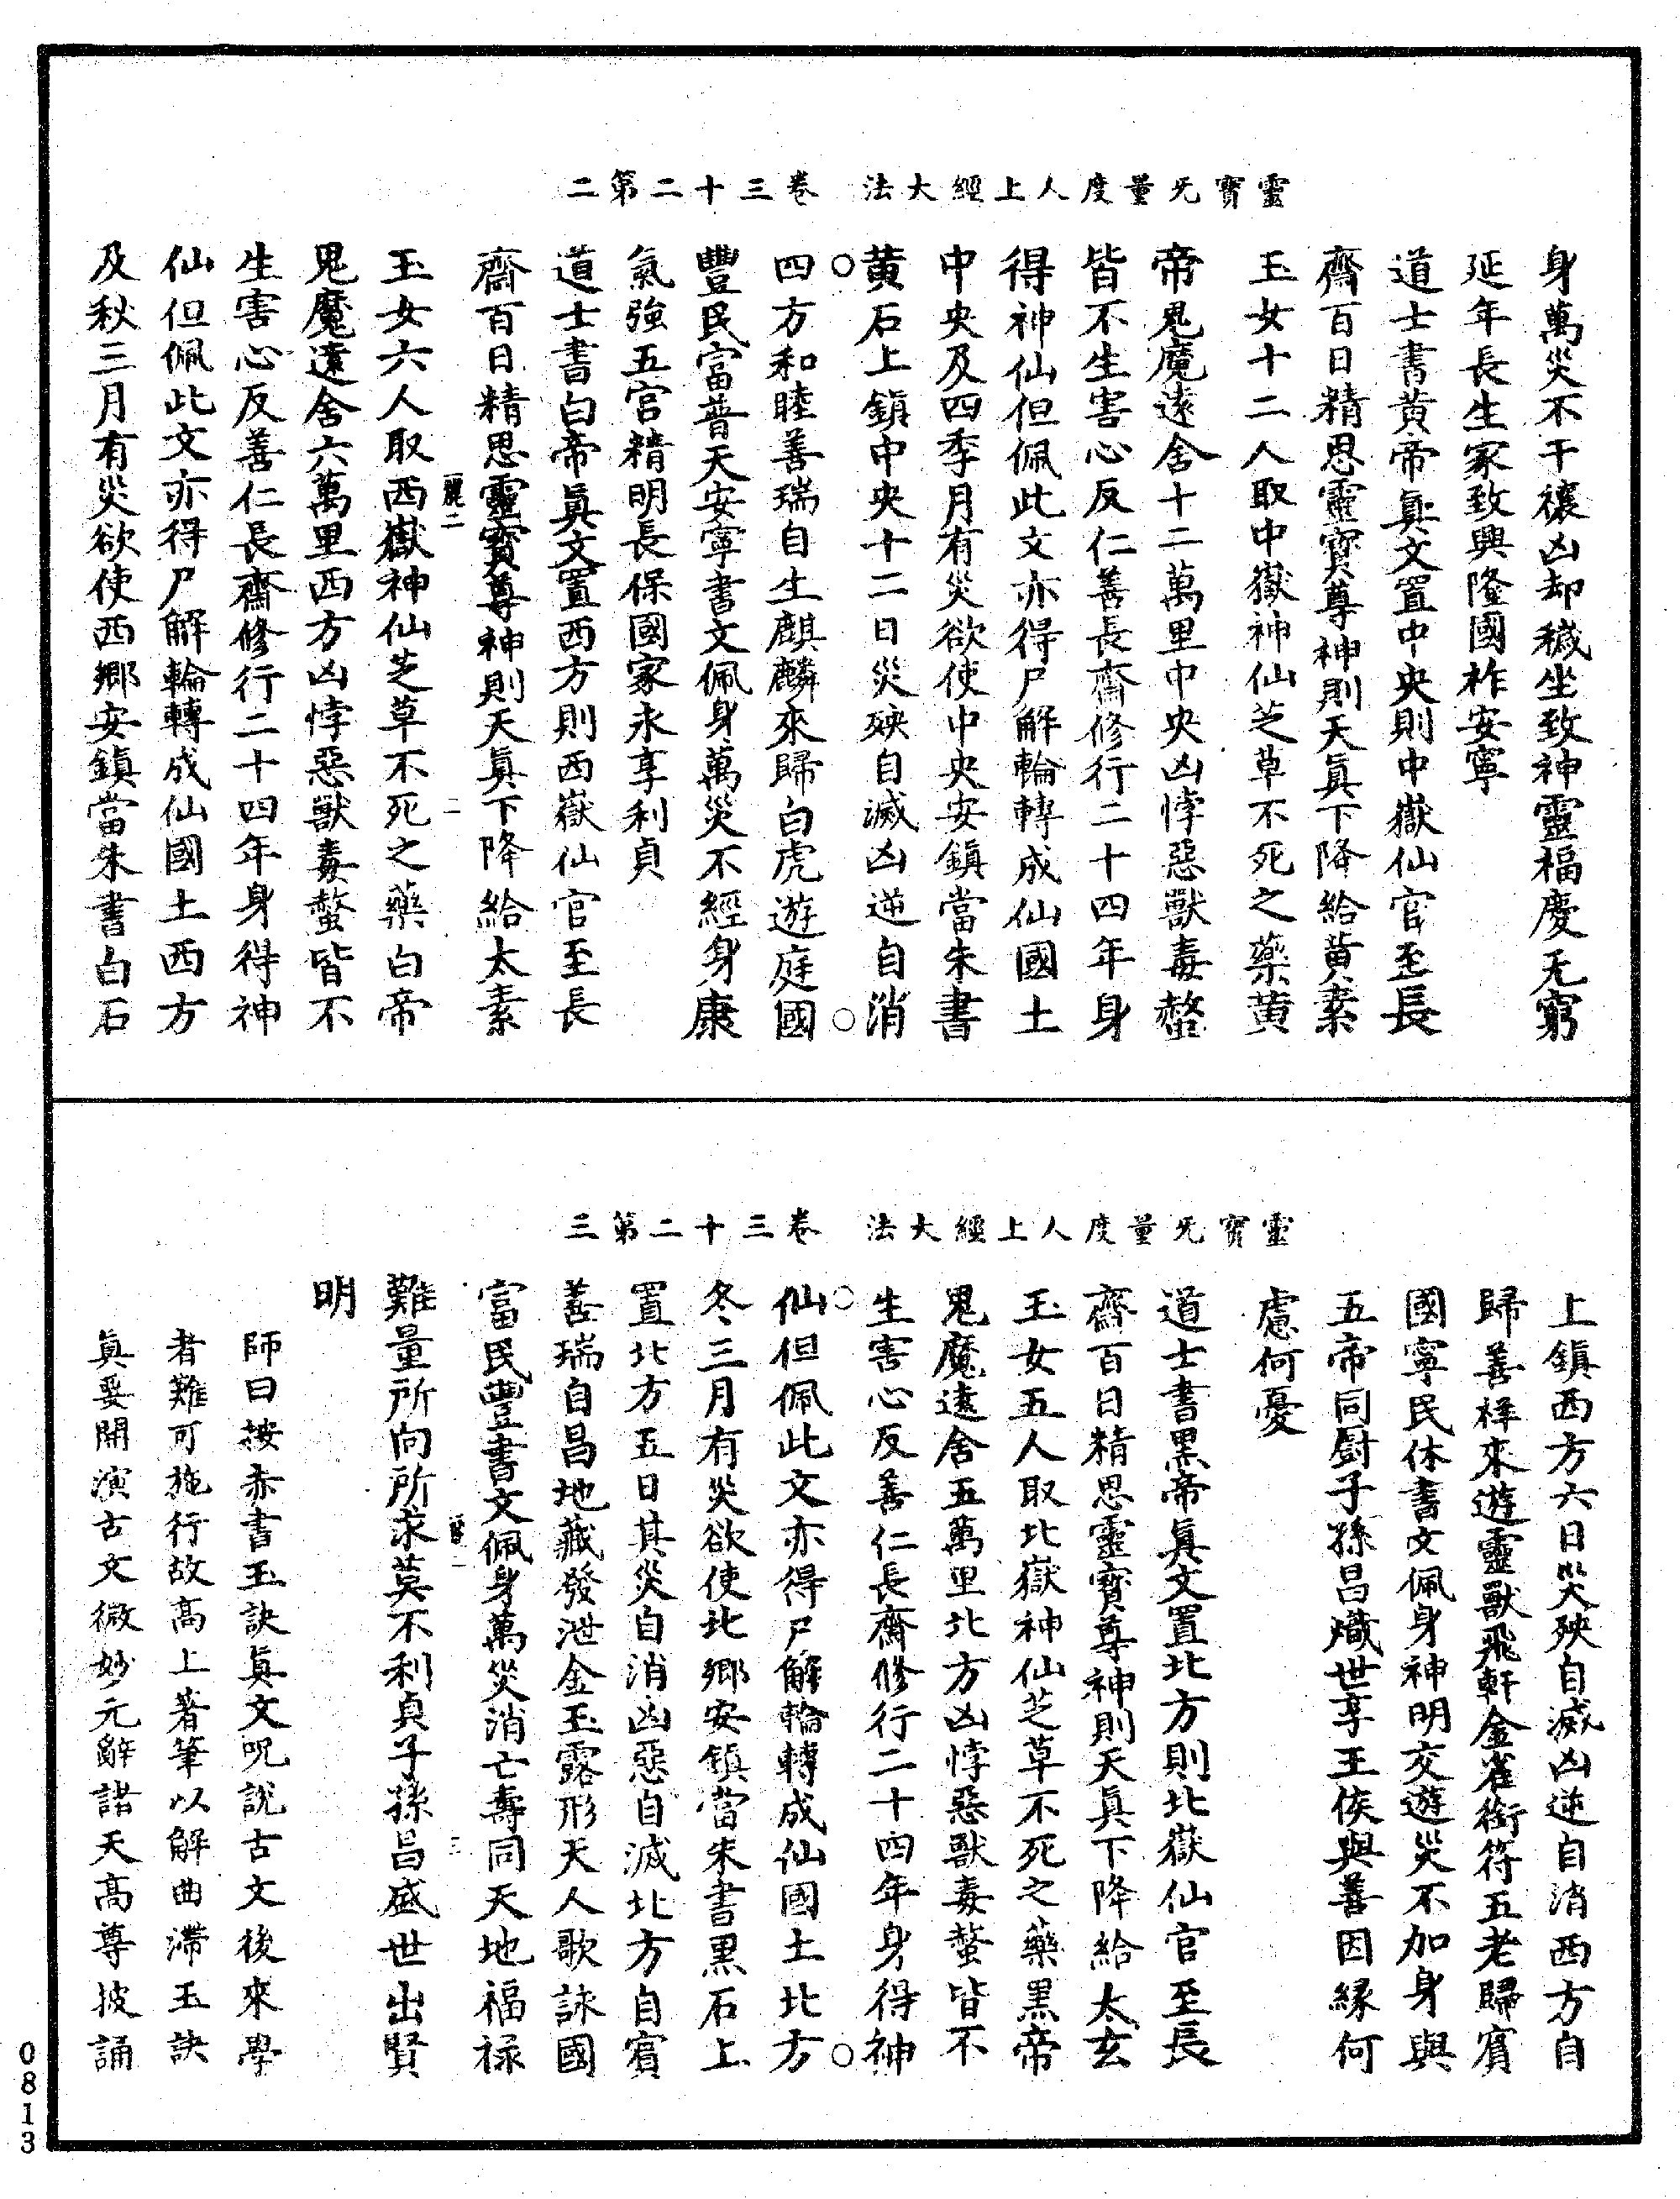 靈寶无量度人上經大法　卷三十二第二
身萬災不干禳凶却穢坐致神靈福慶无窮
延年長生家致興隆國祚安寧
道士書黃帝真文置中央則中嶽仙官至長
齋百日精思靈寶尊神則天真下降給黃素
玉女十二人取中嶽神仙芝草不死之藥黃
帝鬼魔遠舍十二萬里中央凶悖惡獸毒螫
皆不生害心反仁善長齋修行二十四年身
得神仙但佩此文亦得尸解輪轉成仙國土
中央及四季月有災欲使中央安鎮當朱書
黃石上鎮中央十二日災殃自滅凶逆自消
四方和睦善瑞自生麒麟來歸白虎遊庭國
豐民富普天安寧書文佩身萬災不經身康
氣強五宮精明長保國家永享利貞
道士書白帝真文置西方則西嶽仙官至長
齋百日精思靈寶尊神則天真下降給太素
玉女六人取西嶽神仙芝草不死之藥白帝
鬼魔遠舍六萬里西方凶悖惡獸毒螫皆不
生害心反善仁長齋修行二十四年身得神
仙但佩此文亦得尸解輪轉成仙國土西方
及秋三月有災欲使西鄉安鎮當朱書白石
靈寶无量度人上經大法　卷三十二第三
上鎮西方六日災殃自滅凶逆自消西方自
歸善祥來遊靈獸飛軒金雀銜符五老歸賓
國寧民休書文佩身神明交遊災不加身與
五帝同厨子孫昌熾世享王侯與善因緣何
慮何憂
道士書黑帝真文置北方則北嶽仙官至長
齋百日精思靈寶尊神則天真下降給太玄
玉女五人取北嶽神仙芝草不死之藥黑帝
鬼魔遠舍五萬里北方凶悖惡獸毒螫皆不
生害心反善仁長齋修行二十四年身得神
仙但佩此文亦得尸解輪轉成仙國土北方
冬三月有災欲使北鄉安鎮當朱書黑石上
置北方五日其災自消凶惡自滅北方自賓
善瑞自昌地藏發泄金玉露形天人歌詠國
富民豐書文佩身萬災消亡壽同天地福祿
難量所向所求莫不利貞子孫昌盛世出賢
明
師曰按赤書玉訣真文呪說古文後來學
者難可施行故高上著筆以解曲滯玉訣
真要開演古文微妙元辭諸天高尊披誦
0813